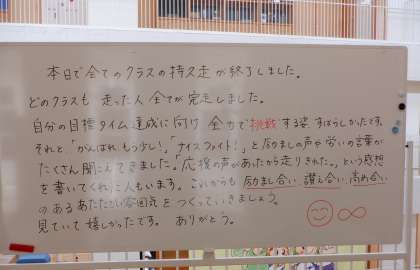 本日で全てのクラスの持久走が終了しました。
どのクラスも 走った人 全てが 完走しました。
自分の目標タイム達成に向け 全力で挑戦する姿、すばらしかったです。
それと「がんばれ、もう少し!」「ナイスファイト!」と励ましの声や労いの言葉が
たくさん聞こえてきました。「応援の声があったから走りきれた。」という感想
を書いてくれた人もいます。これからも 励まし合い、讃え合い、高め合い
のある あたたかい雰囲気を つくっていきましょう。
見ていて嬉しかったです。 ありがとう。